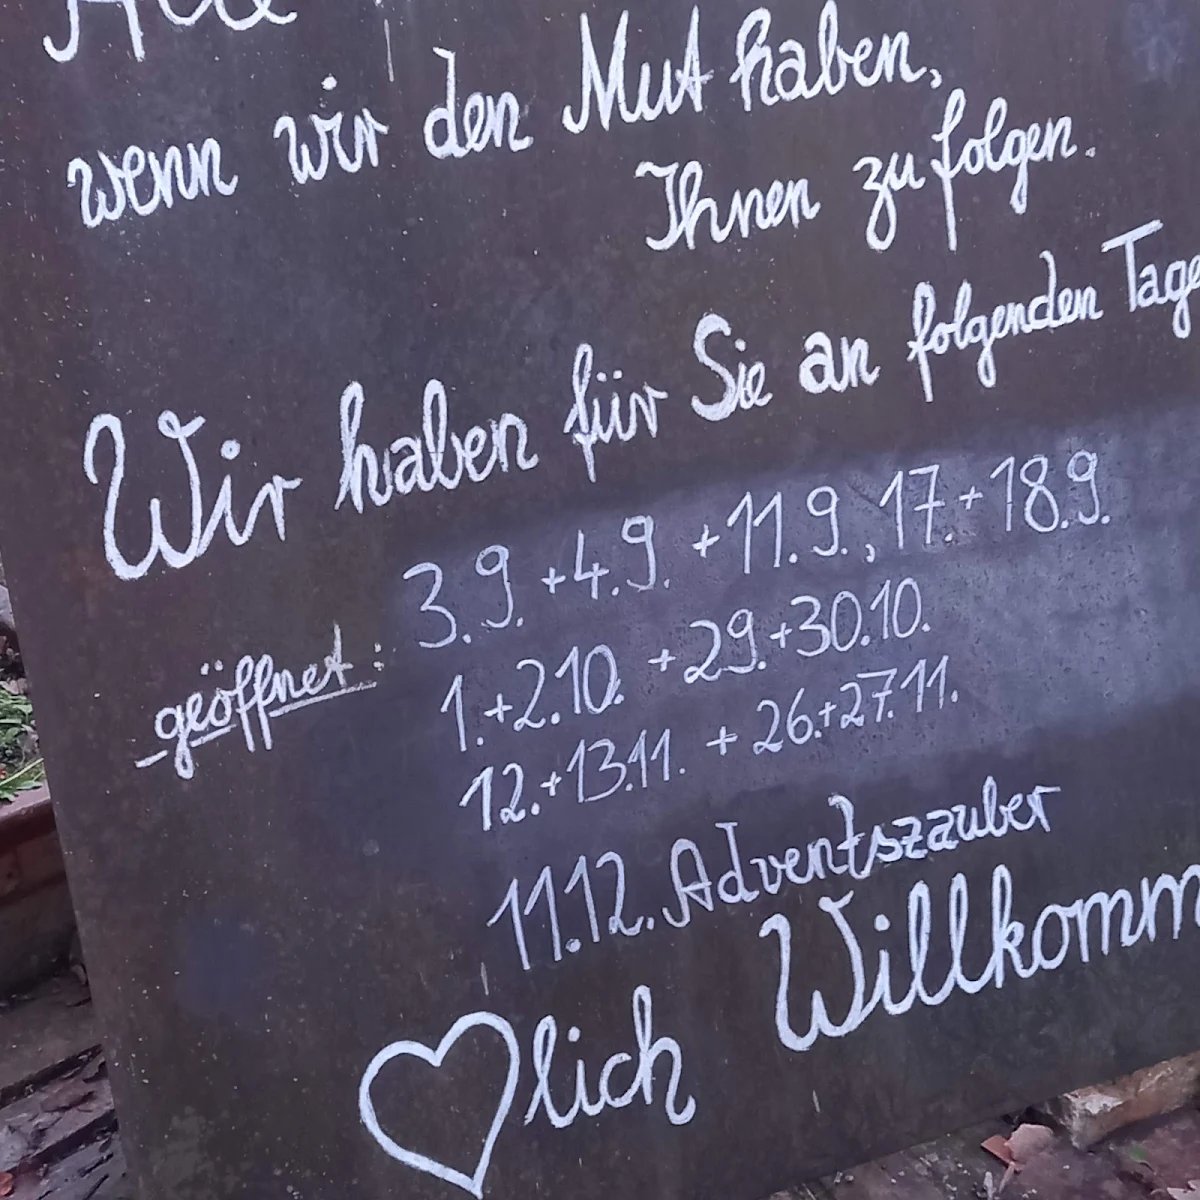 Alle
wenn wir den Mut haben,
Ihnen zu folgen.
Wir haben für Sie an folgenden Tage
geöffnet: 3.9. + 4.9. + 11.9., 17. + 18.9.
1. + 2.10. + 29. + 30.10.
12. + 13.11. + 26. + 27.11.
11.12. Adventszauber
♡lich Willkomm